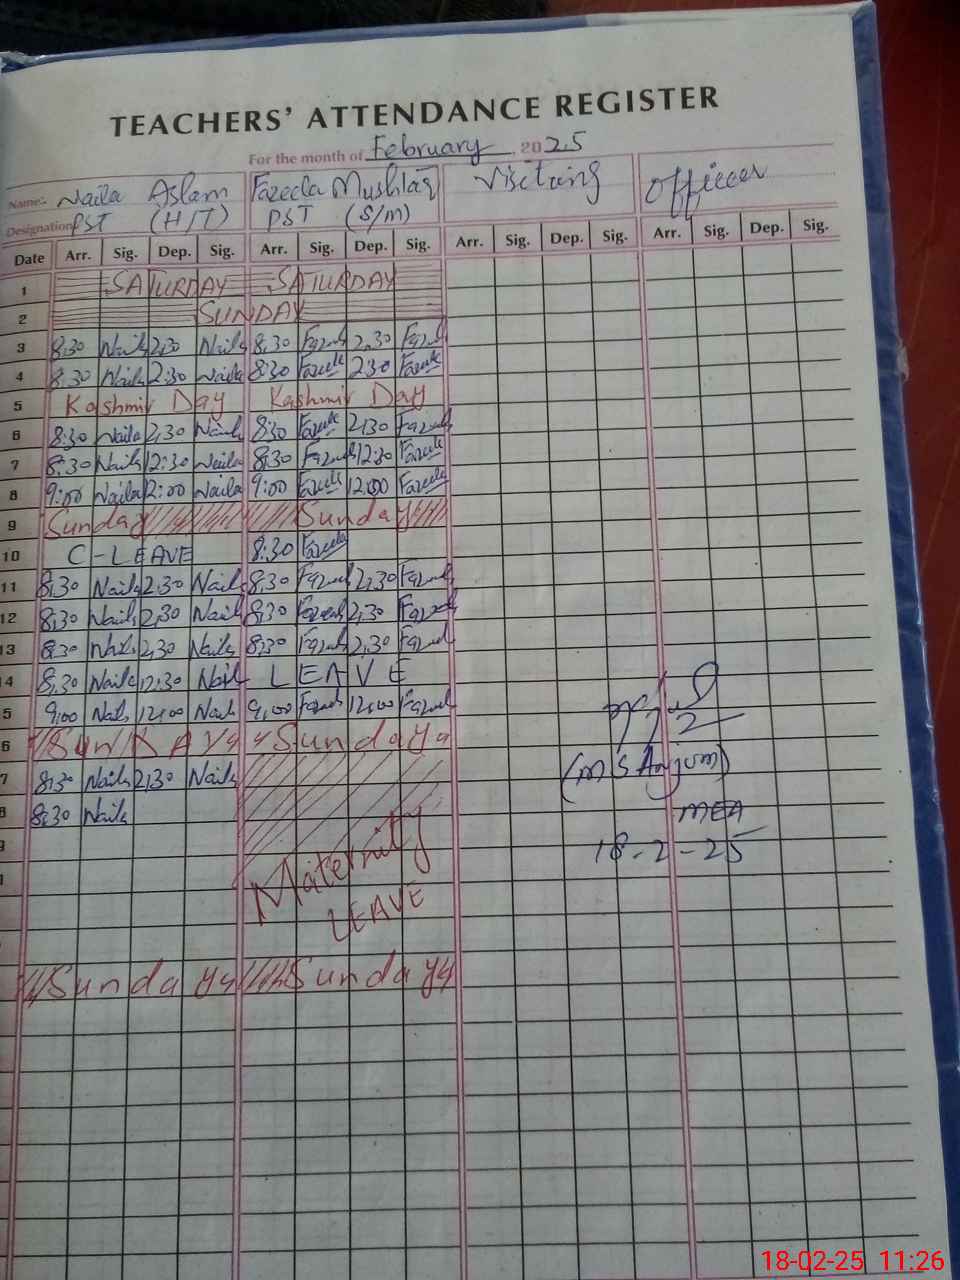 TEACHERS' ATTENDANCE REGISTER
For the month of February 2025
Name:- Naila Aslam Fazeela Mushtaq Visiting Officer
Designation PST (H/T) PST (S/M)
Date Arr. Sig. Dep. Sig. Arr. Sig. Dep. Sig. Arr. Sig. Dep. Sig. Arr. Sig. Dep. Sig.
1 SATURDAY SATURDAY
2 SUNDAY
3 8:30 Naila 2:30 Naila 8:30 2:30
4 8:30 Naila 2:30 Naila 8:30 2:30
5 Kashmir Day Kashmir Day
6 8:30 Naila 2:30 Naila 8:30 2:30
7 8:30 Naila 12:30 Naila 8:30 12:30
8 9:00 Naila 12:00 Naila 9:00 12:00
9 Sunday Sunday
10 C-LEAVE 8:30
11 8:30 Naila 2:30 Naila 8:30 2:30
12 8:30 Naila 2:30 Naila 8:30 2:30
13 8:30 Naila 2:30 Naila 8:30 2:30
14 8:30 Naila 12:30 Naila LEAVE
5 9:00 Naila 12:00 Naila 9:00 12:00
6 SUNDAY Sunday
7 8:30 Naila 2:30 Naila
8 8:30 Naila
9
Maternity
LEAVE
Sunday Sunday
(M S Anjum)
MEA
18-2-25
18-02-25 11:26